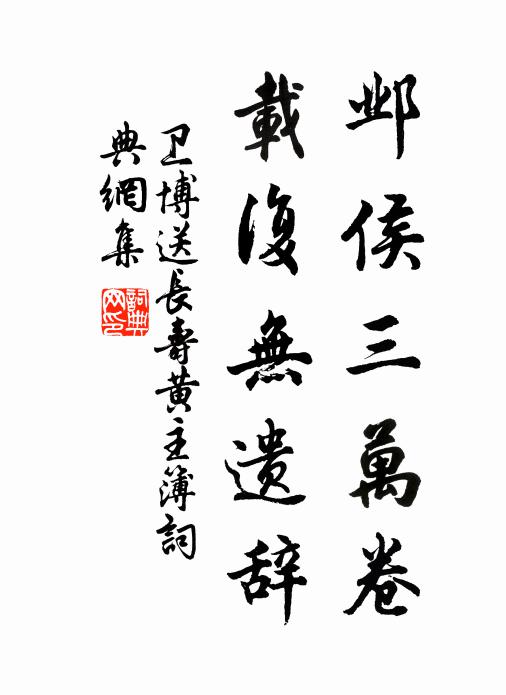 邺侯三萬卷
載復無遗辞
卫博送長壽黄主簿詞
典網集
詞典網印